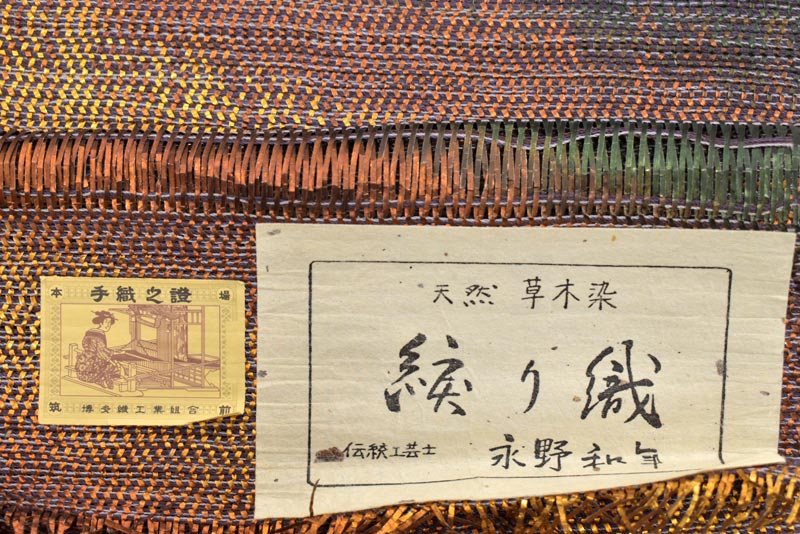 本 手織之證 場
筑 博多織工業組合 前
天然 草木染
綟り織
伝統工芸士 永野和年